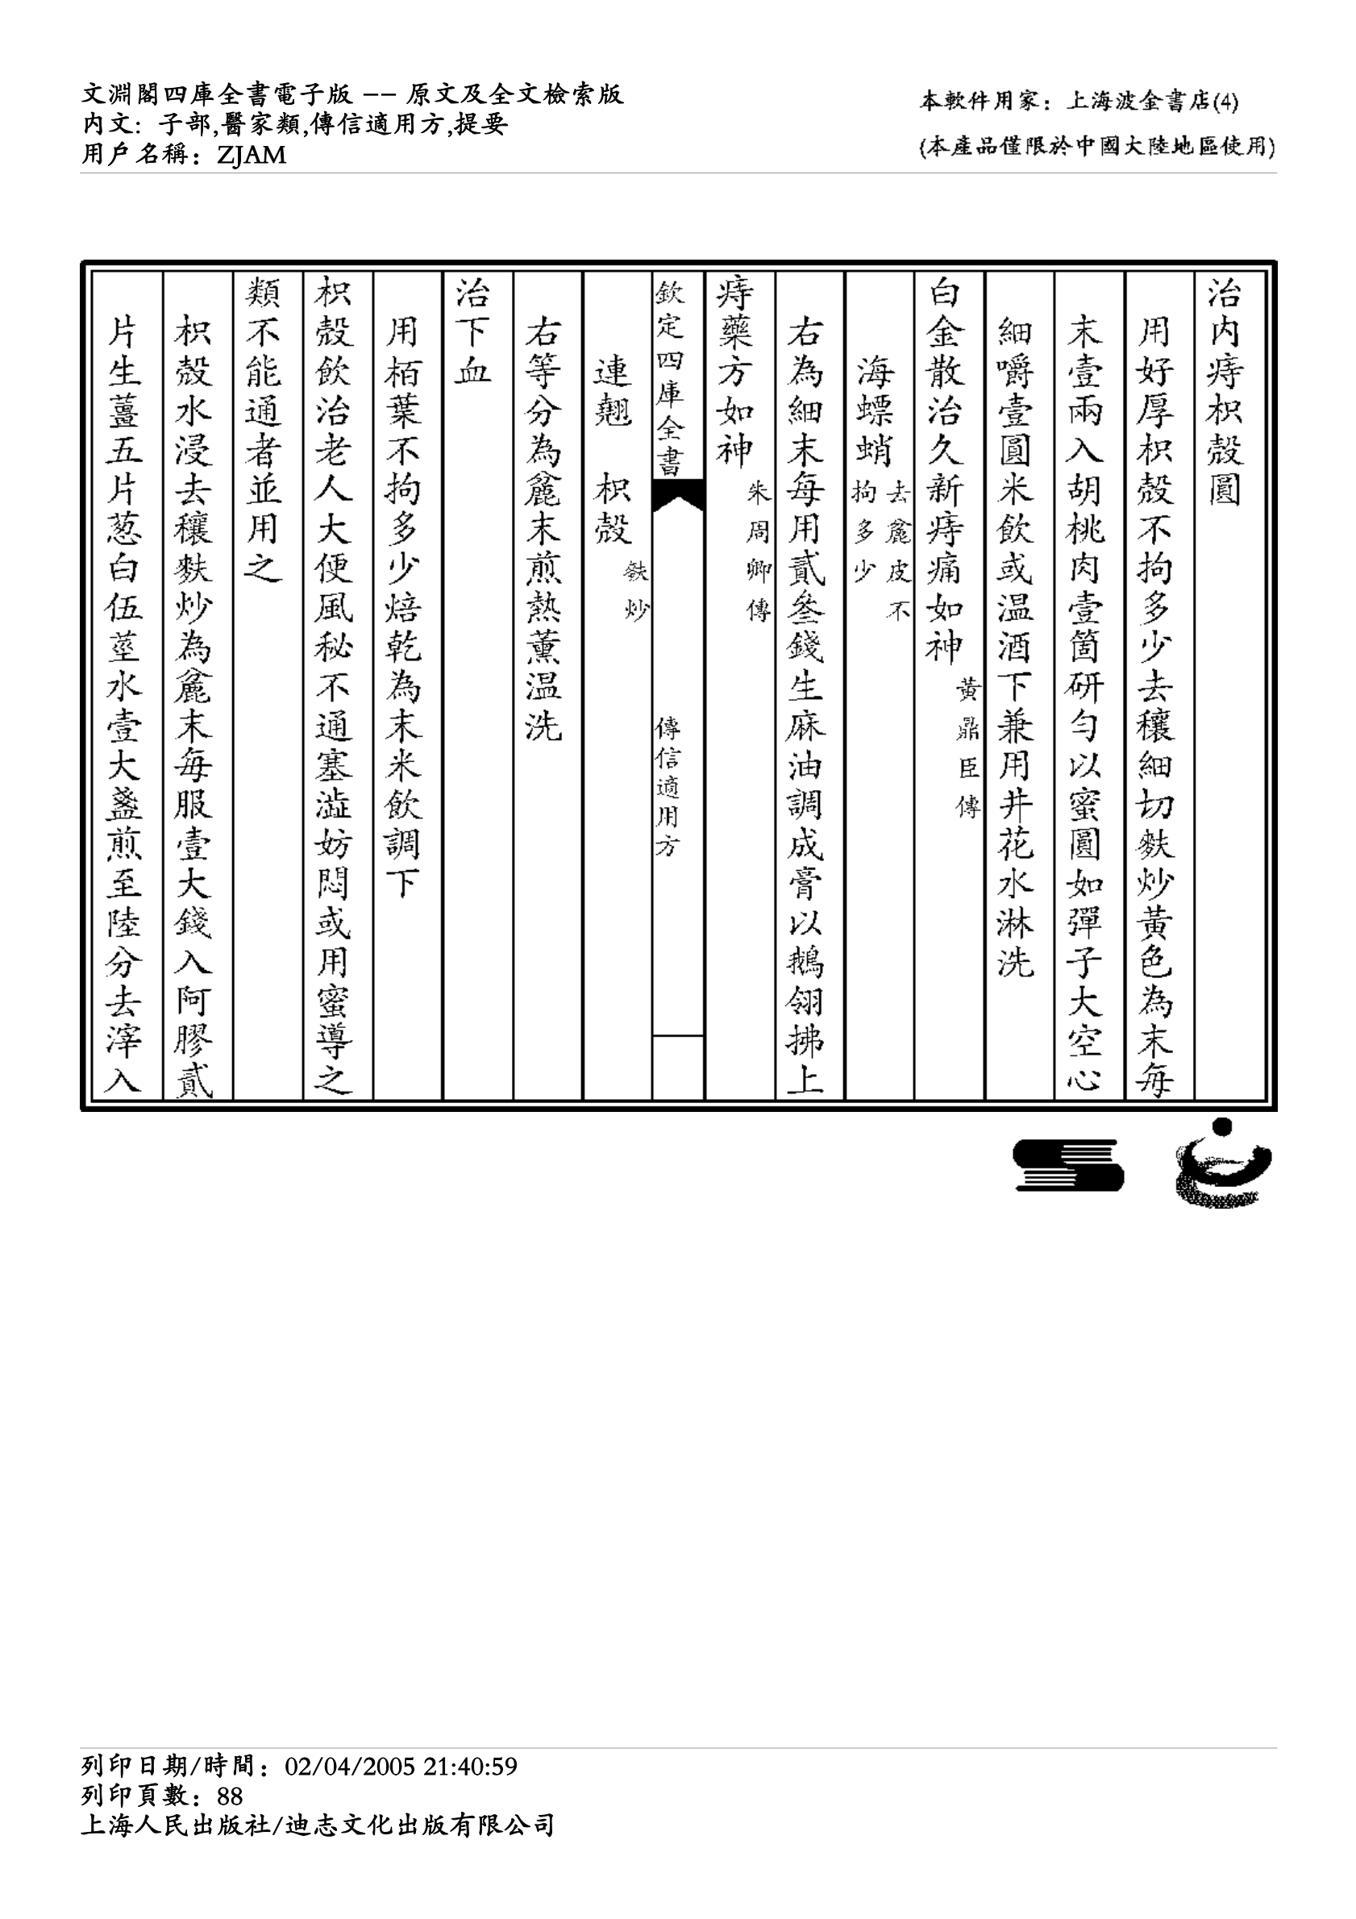 文淵閣四庫全書電子版 -- 原文及全文檢索版
內文: 子部,醫家類,傳信適用方,提要
用戶名稱: ZJAM
本軟件用家: 上海波金書店(4)
(本產品僅限於中國大陸地區使用)
治内痔枳殼圓
用好厚枳殼不拘多少去穰細切麩炒黃色為末每
末壹兩入胡桃肉壹箇研勻以蜜圓如彈子大空心
細嚼壹圓米飲或温酒下兼用井花水淋洗
白金散治久新痔痛如神黃鼎臣傳
海螵蛸去麄皮不拘多少
右為細末每用貳叁錢生麻油調成膏以鵝翎拂上
痔藥方如神朱周卿傳
欽定四庫全書 傳信適用方
連翹 枳殼麩炒
右等分為麄末煎熱薰温洗
治下血
用栢葉不拘多少焙乾為末米飲調下
枳殼飲治老人大便風秘不通塞澁妨悶或用蜜導之
類不能通者並用之
枳殼水浸去穰麩炒為麄末每服壹大錢入阿膠貳
片生薑五片葱白伍莖水壹大盞煎至陸分去滓入
列印日期/時間: 02/04/2005 21:40:59
列印頁數: 88
上海人民出版社/迪志文化出版有限公司